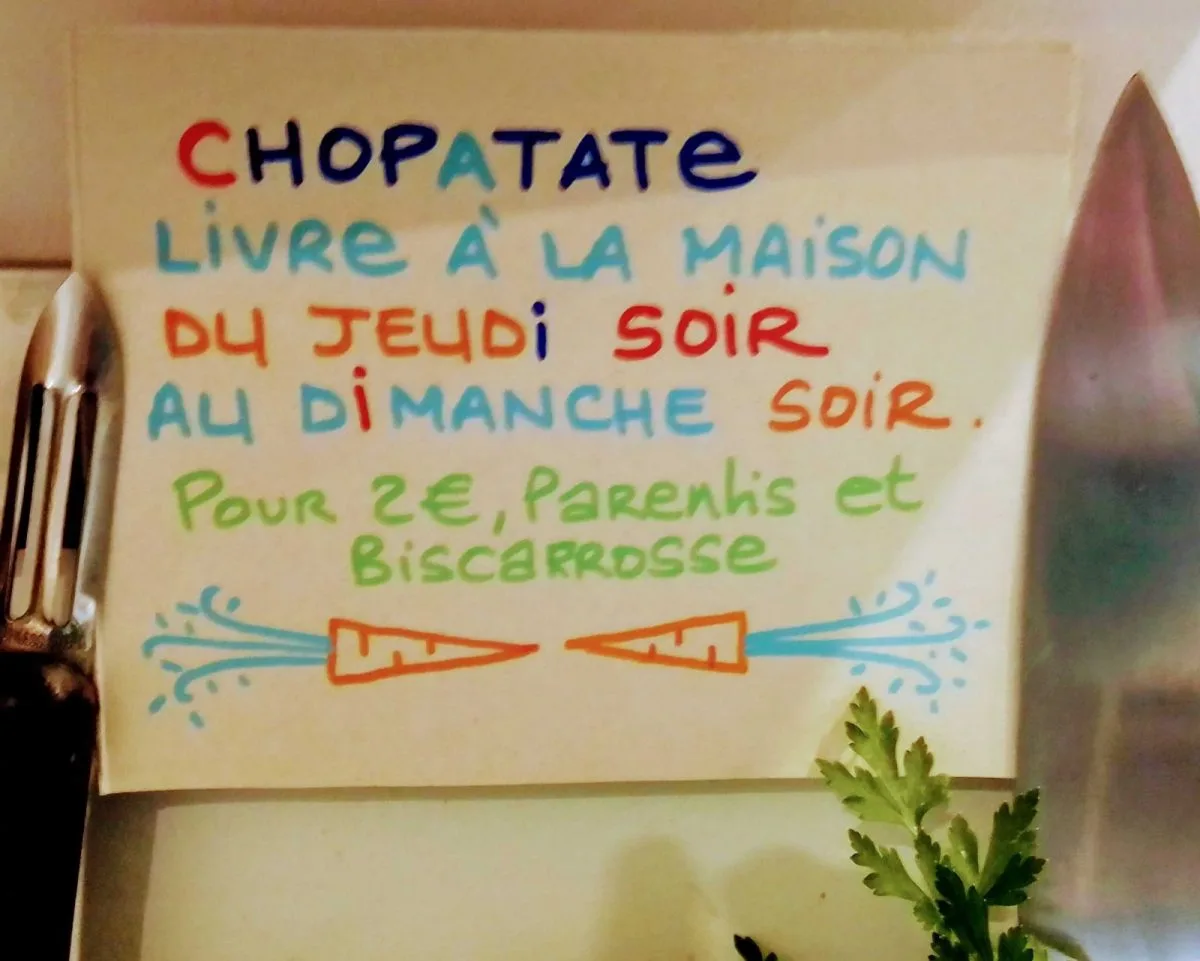 CHOPATATe
LiVRe À LA MAiSON
DU JEUDi SOiR
AU DiMANCHE SOiR.
Pour 2€, Parentis et
Biscarrosse